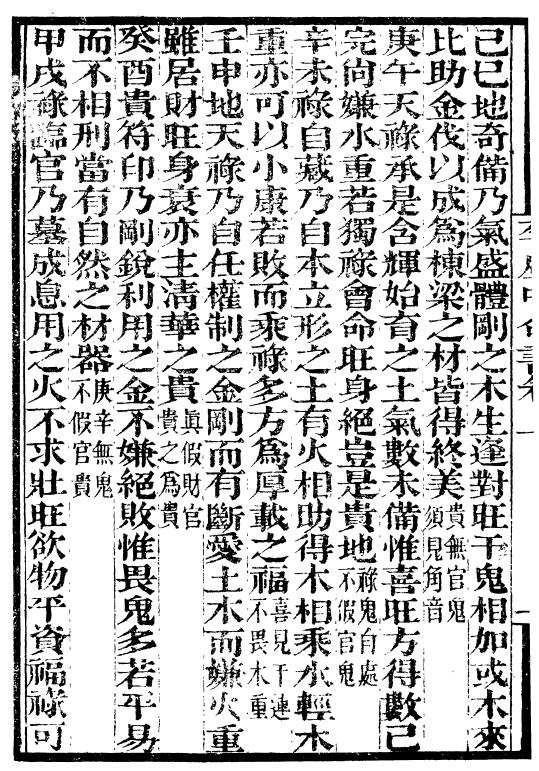 己巳地奇備乃氣盛體剛之木生逢對旺干鬼相加或木來
比助金伐以成為棟梁之材皆得終美貴無官鬼須見角音
庚午天祿承是含輝始育之土氣數未備惟喜旺方得數已
完尚嫌水重若獨祿會命旺身絕豈是貴地祿鬼自處不假官鬼
辛未祿自藏乃自本立形之土有火相助得木相乘水輕木
重亦可以小康若敗而乘祿多方為厚載之福喜見干連不畏木重
壬申地天祿乃自任權制之金剛而有斷愛土水而嫌火重
雖居財旺身衰亦主清華之貴真假財官貴之為貴
癸酉貴符印乃剛銳利用之金不嫌絕敗惟畏鬼多若平易
而不相刑當有自然之材器庚辛無鬼不假官貴
甲戌祿臨官乃墓成息用之火不求壯旺欲物平資福祿可